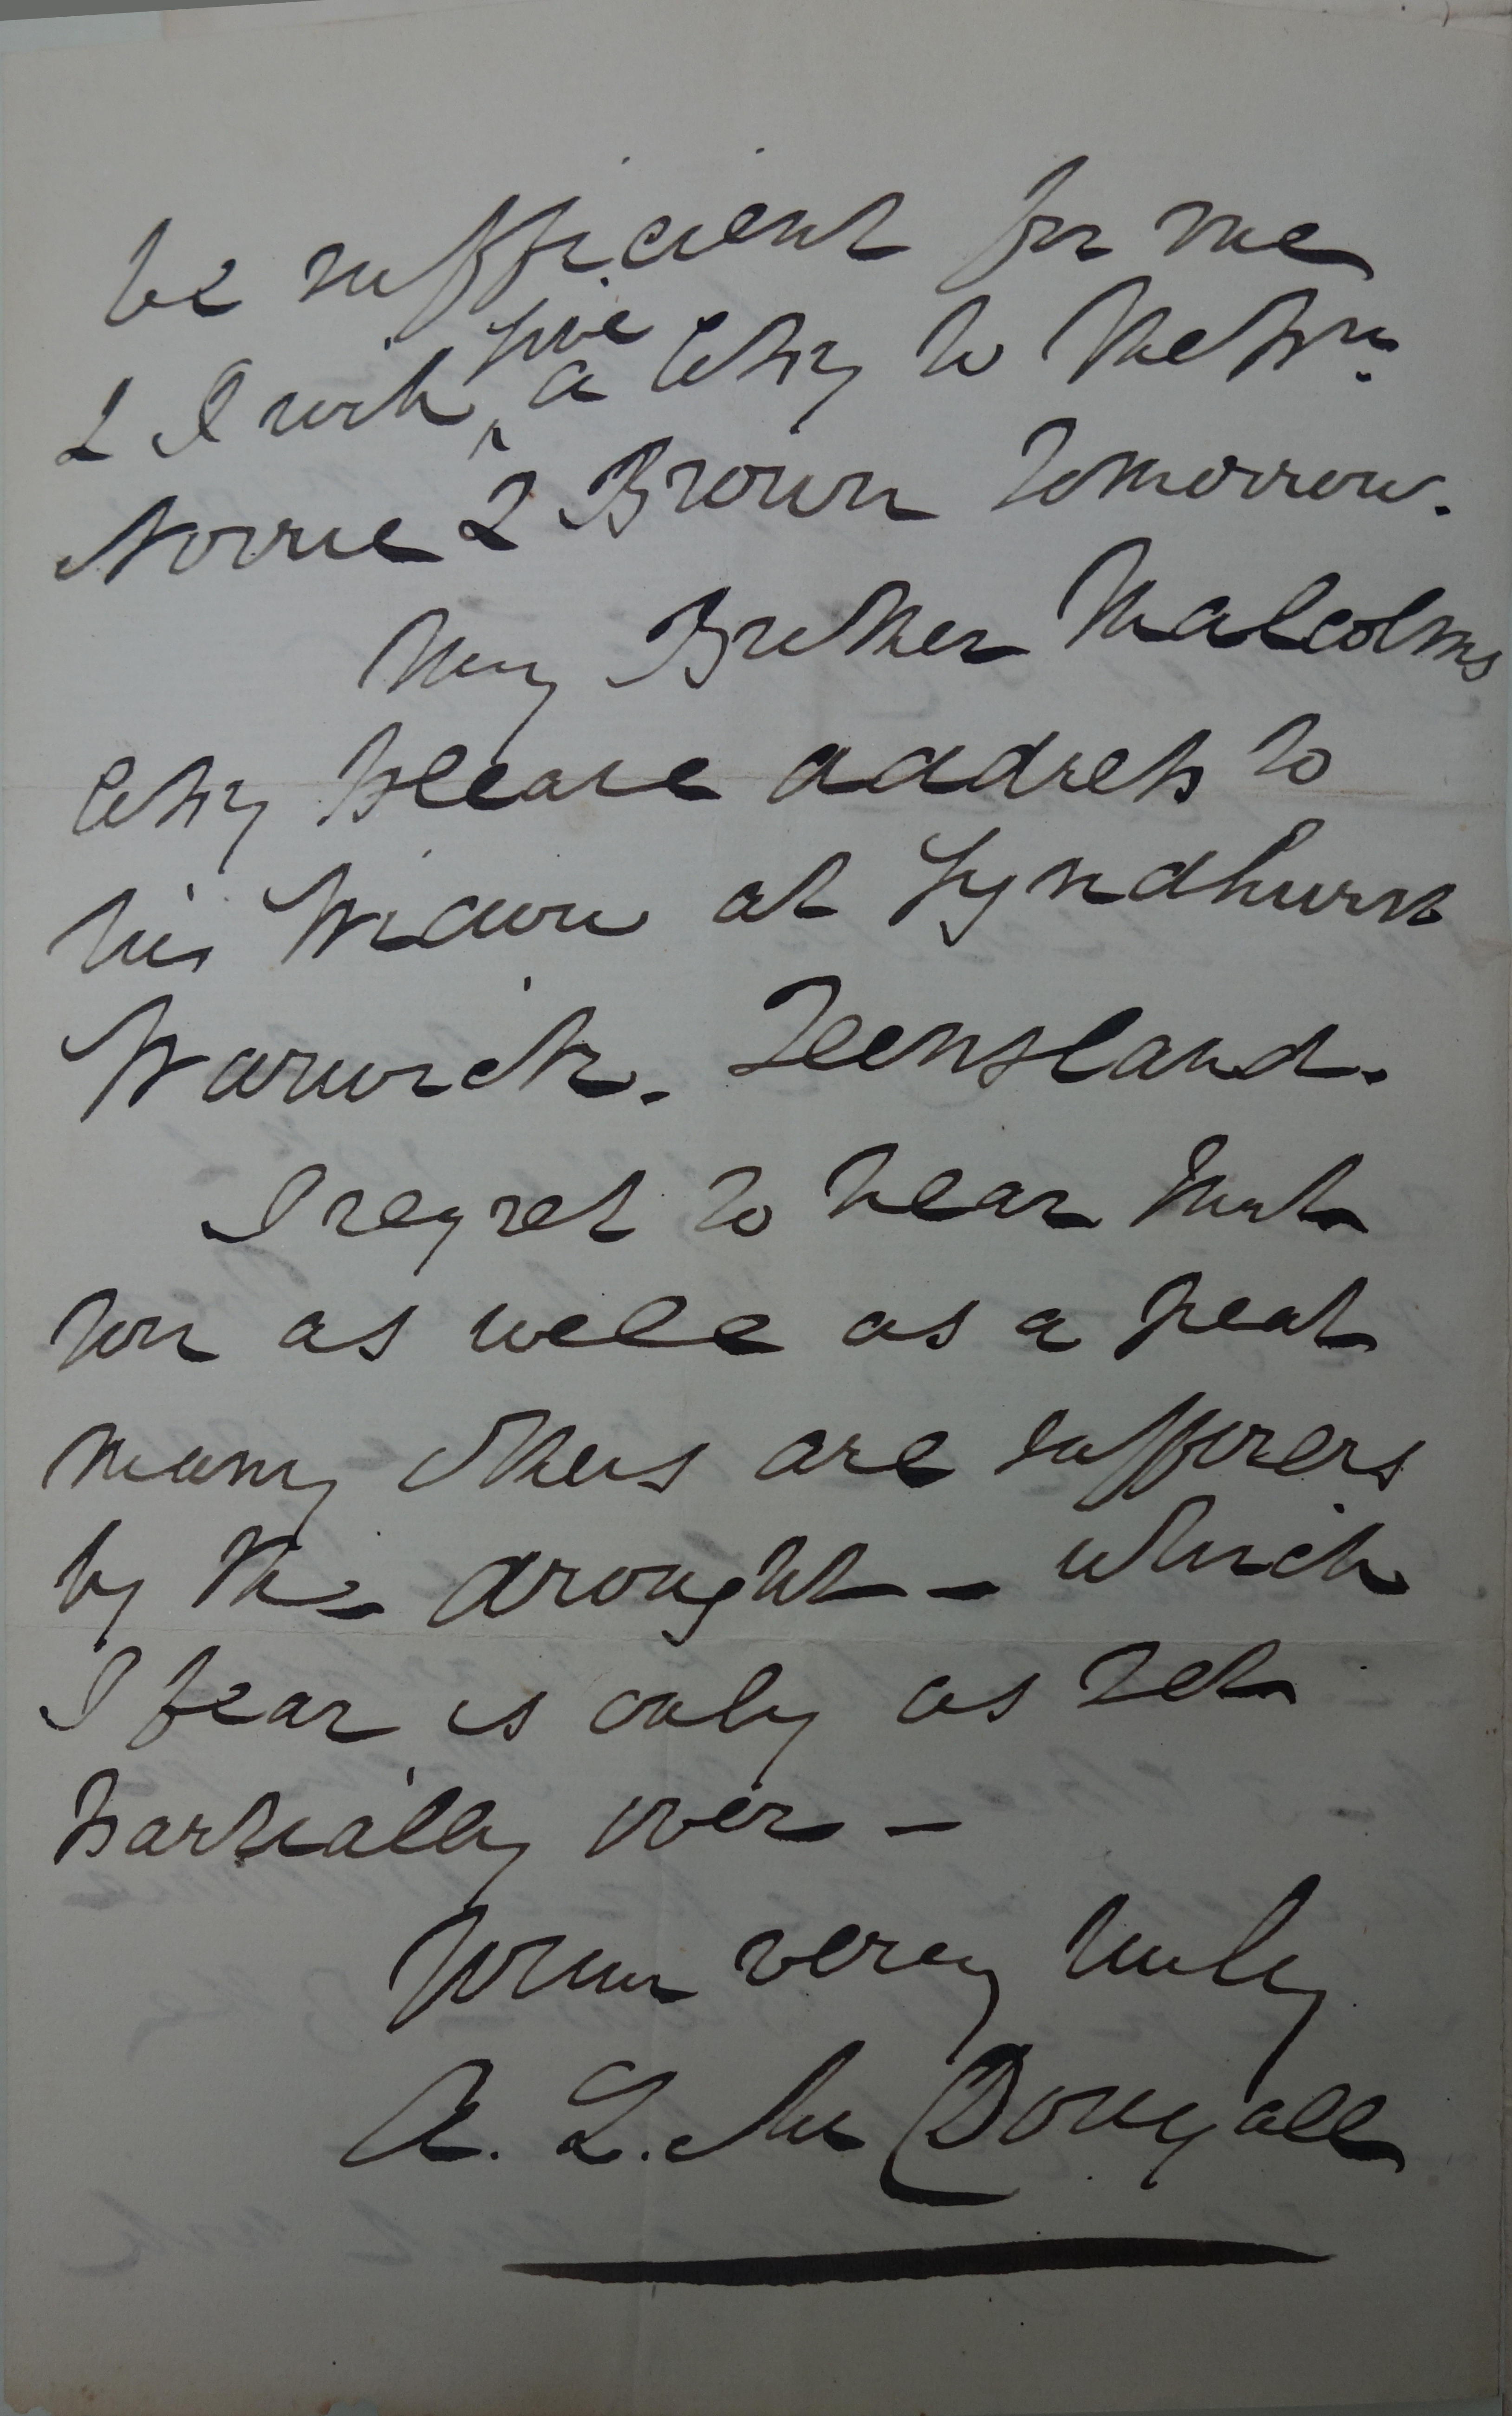 be sufficient for me
& I will give a Copy to Messrs.
Norrie & Brown tomorrow.
My Brother Malcolms
Copy please address to
his Widow at Lyndhurst
Warwick. Queensland.
I regret to hear that
you as well as a great
many others are sufferers
by the drought - which
I fear is only as yet
partially over -
Yours very truly
A. L. McDougall